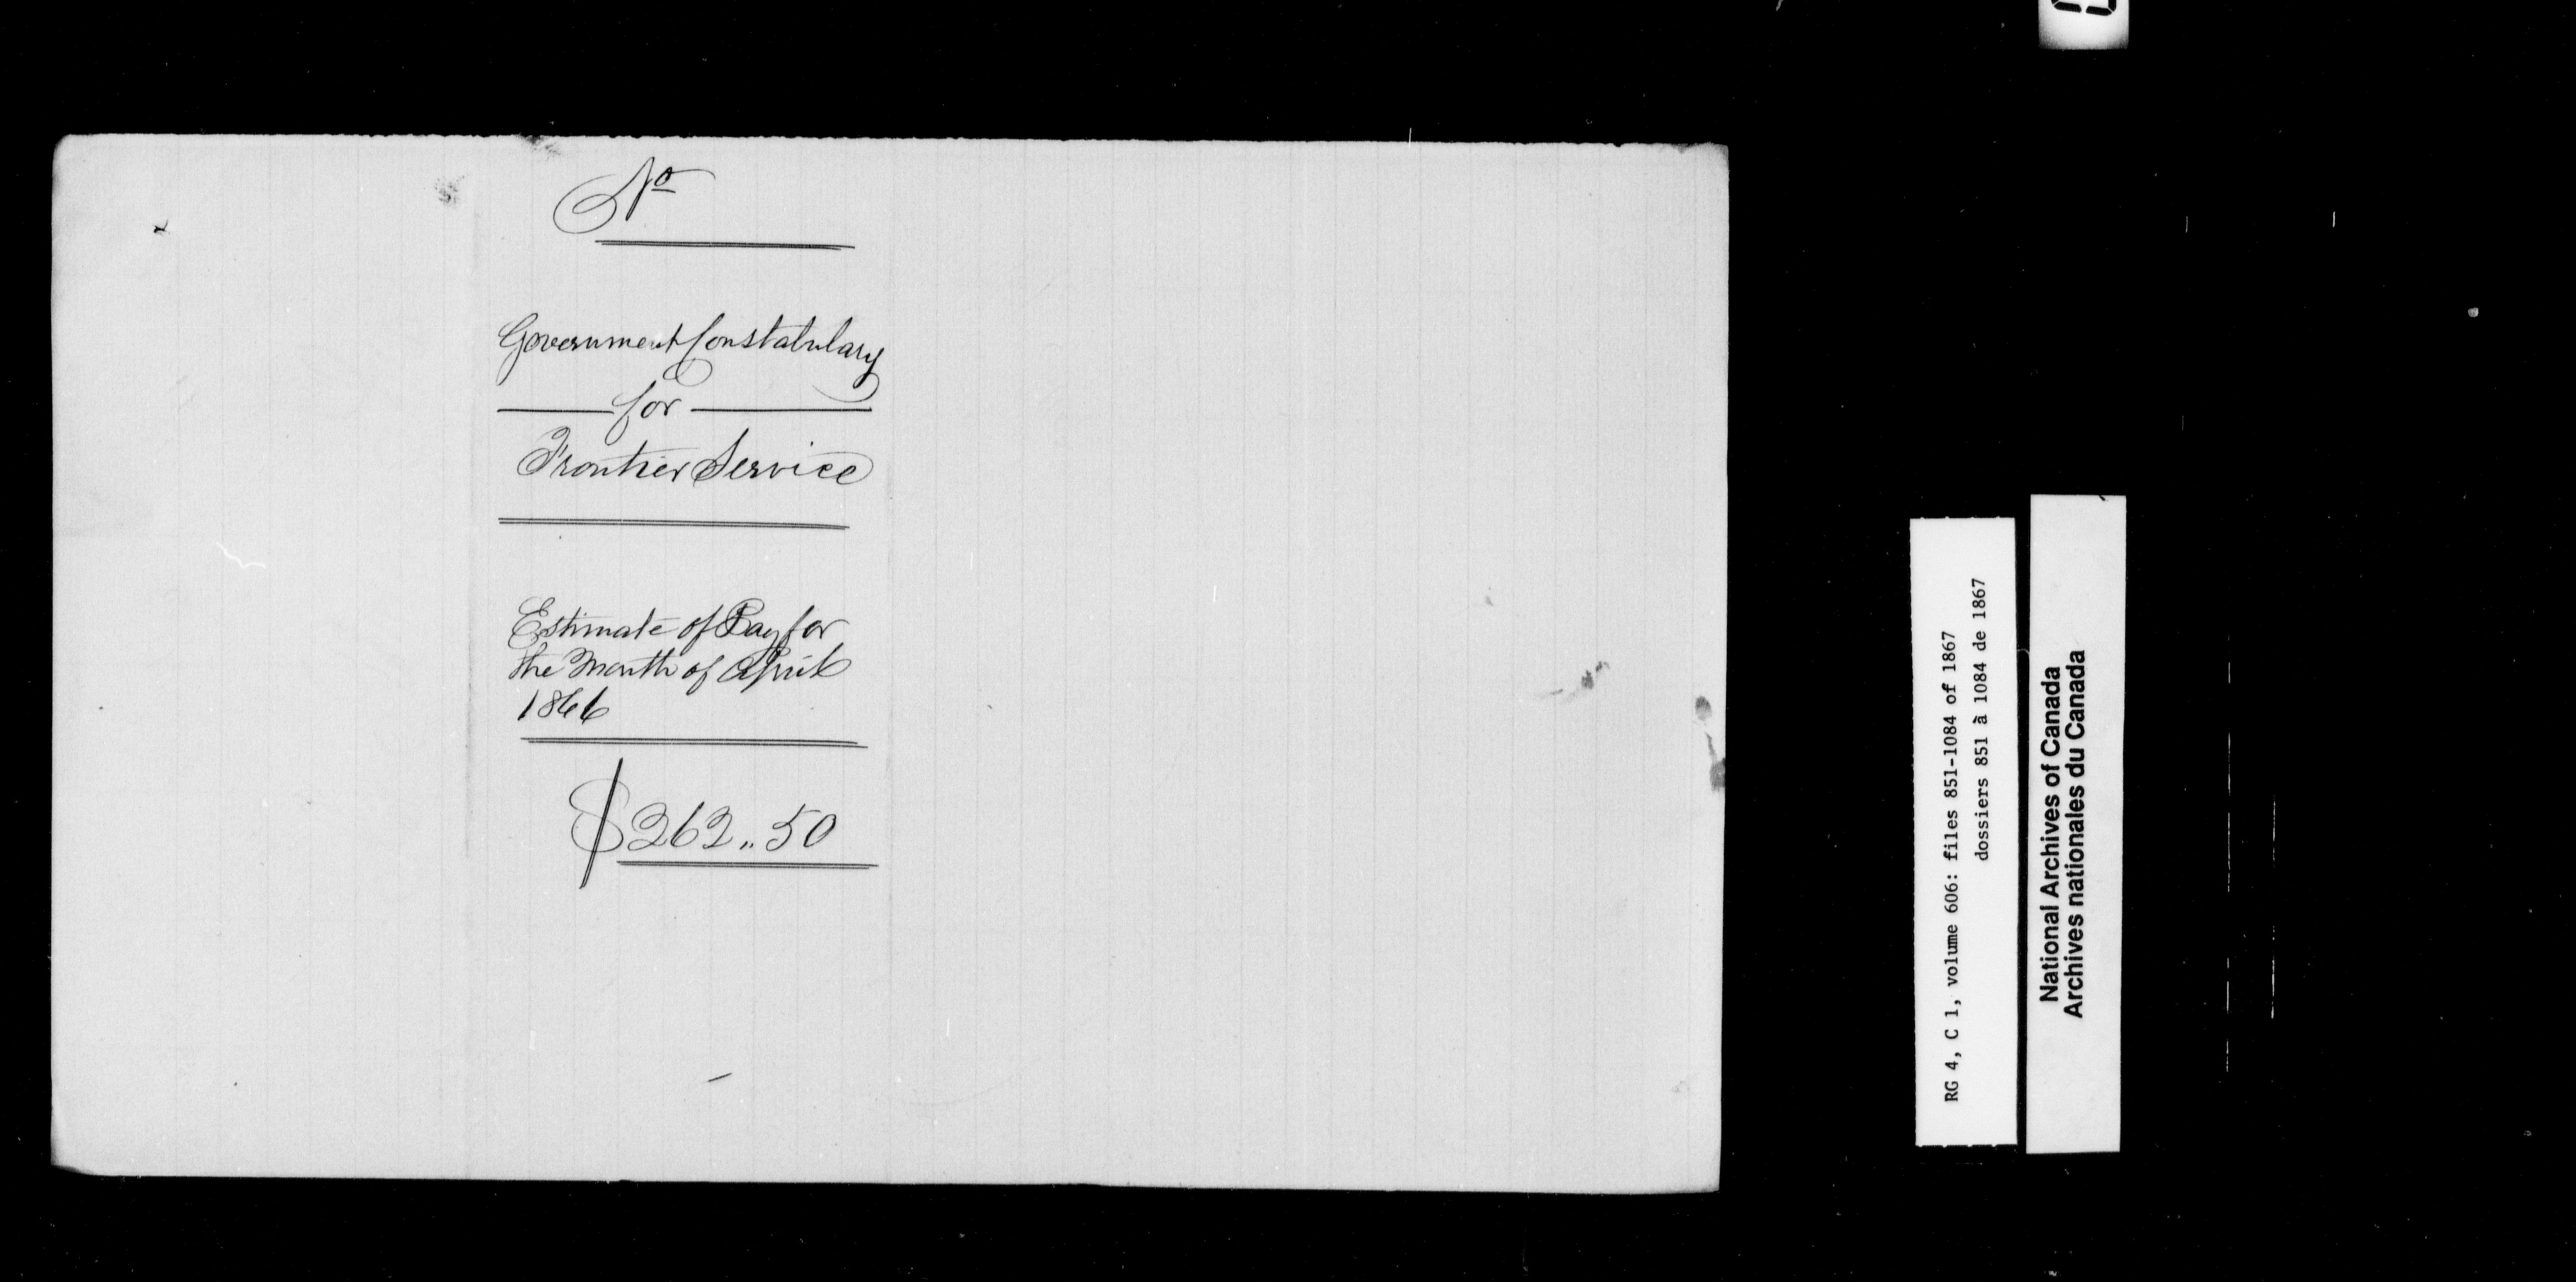 No
Government Constabulary
for
Frontier Service
Estimate of Pay for
the Month of April
1866
$262.. 50
RG 4, C 1, volume 606: files 851-1084 of 1867
dossiers 851 à 1084 de 1867
National Archives of Canada
Archives nationales du Canada